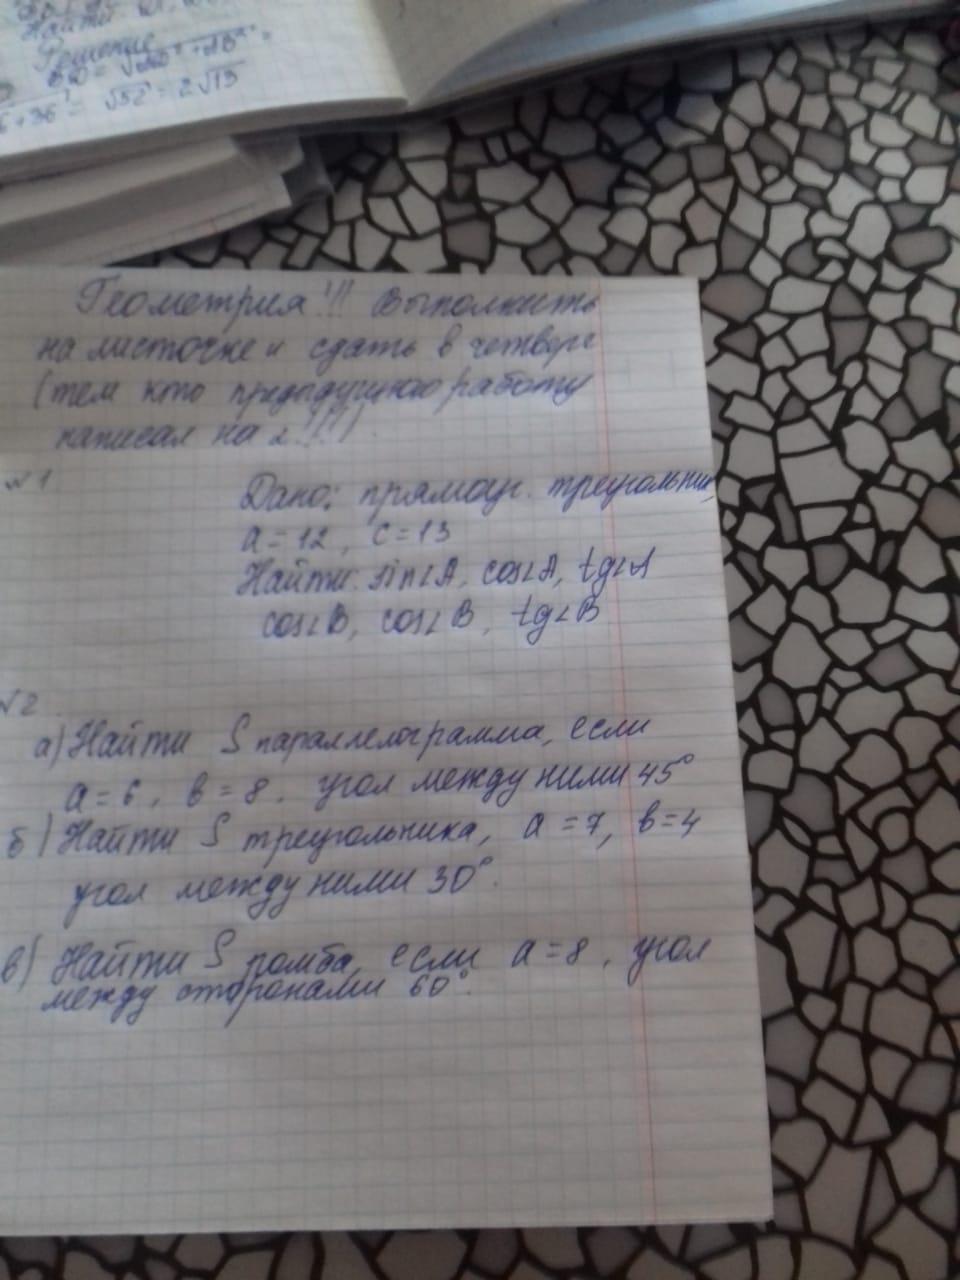 Найти
Решение
= √52 = 2√13
Геометрия!!! Выполнить
на листочке и сдать в четверг
(тем кто предыдущую работу
написал на 2!!!)
№1
Дано: прямоуг. треугольник,
a = 12, c = 13
Найти: sin∠A, cos∠A, tg∠A
cos∠B, cos∠B, tg∠B
№2
а) Найти S параллелограмма, если
a = 6, в = 8. угол между ними 45°
б) Найти S треугольника, a = 7, в = 4
угол между ними 30°.
в) Найти S ромба, если a = 8, угол
между сторонами 60°.